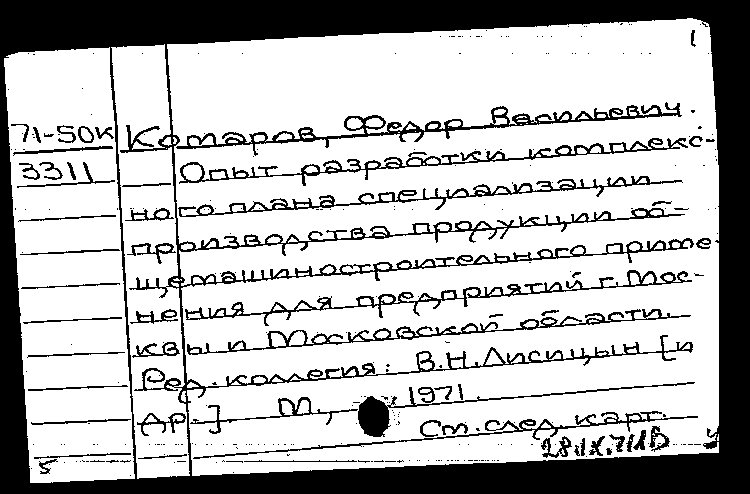 1
71-50К Комаров, Федор Васильевич.
3311 Опыт разработки комплекс-
ного плана специализации
производства продукции об-
щемашиностроительного приме-
нения для предприятий г. Мос-
квы и Московской области.
Ред. коллегия: В.Н. Лисицын [и
др.]. М., 1971.
См. след. карт.
28.IX.71
5